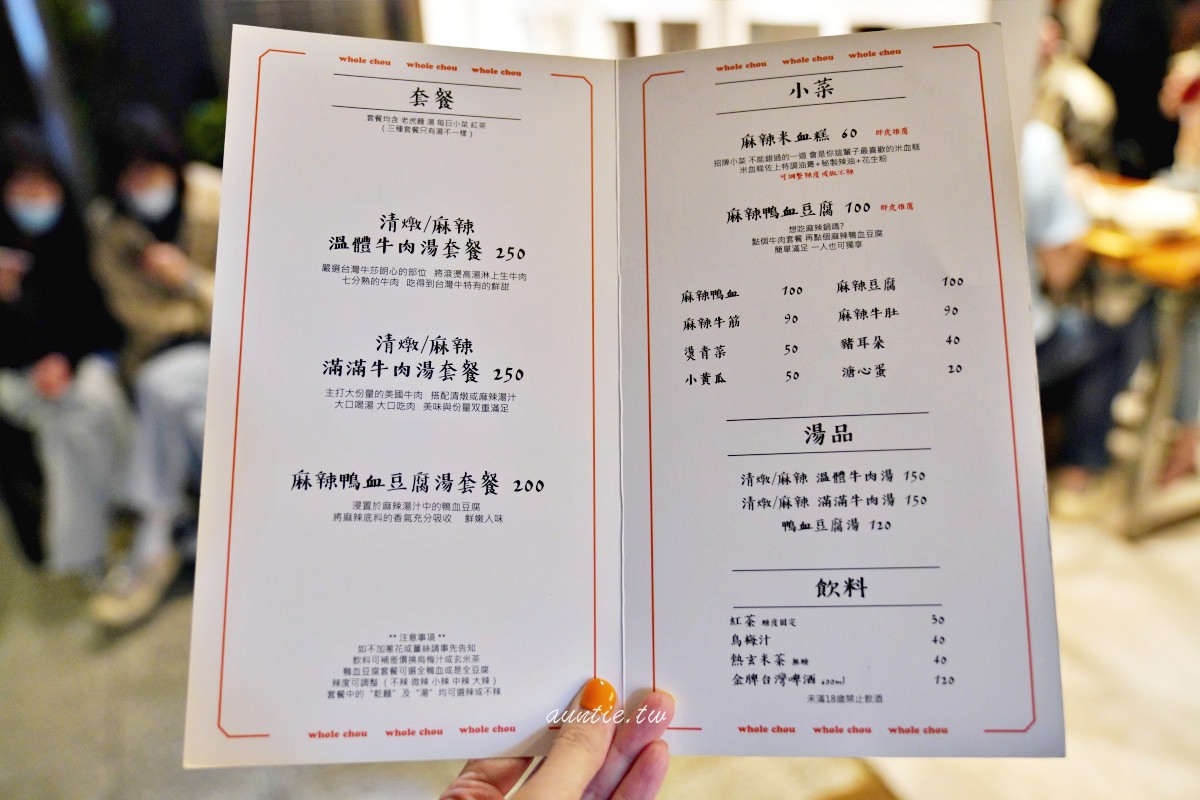 whole chou whole chou whole chou
套餐
套餐均含 老虎麵 湯 每日小菜 紅茶
(三種套餐只有湯不一樣)
清燉/麻辣
溫體牛肉湯套餐 250
嚴選台灣牛莎朗心的部位 將滾燙高湯淋上生牛肉
七分熟的牛肉 吃得到台灣牛特有的鮮甜
清燉/麻辣
滿滿牛肉湯套餐 250
主打大份量的美國牛肉 搭配清燉或麻辣湯汁
大口喝湯 大口吃肉 美味與份量双重滿足
麻辣鴨血豆腐湯套餐 200
浸置於麻辣湯汁中的鴨血豆腐
將麻辣底料的香氣充分吸收 鮮嫩入味
** 注意事項 **
如不加蔥花或薑絲請事先告知
飲料可補差價換烏梅汁或玄米茶
鴨血豆腐套餐可選全鴨血或是全豆腐
辣度可調整 (不辣 微辣 小辣 中辣 大辣)
套餐中的“乾麵”及“湯”均可選辣或不辣
whole chou whole chou whole chou
whole chou whole chou whole chou
小菜
麻辣米血糕 60 胖虎推薦
招牌小菜 不能錯過的一道 會是你這輩子最喜歡的米血糕
米血糕佐上特調油膏+秘製辣油+花生粉
可調整辣度或做不辣
麻辣鴨血豆腐 100 胖虎推薦
想吃麻辣鍋嗎?
點個牛肉套餐 再點個麻辣鴨血豆腐
簡單滿足 一人也可獨享
麻辣鴨血 100 麻辣豆腐 100
麻辣牛筋 90 麻辣牛肚 90
燙青菜 50 豬耳朵 40
小黃瓜 50 溏心蛋 20
湯品
清燉/麻辣 溫體牛肉湯 150
清燉/麻辣 滿滿牛肉湯 150
鴨血豆腐湯 120
飲料
紅茶 糖度固定 30
烏梅汁 40
熱玄米茶 無糖 40
金牌台灣啤酒 600ml 120
未滿18歲禁止飲酒
whole chou whole chou whole chou
auntie.tw